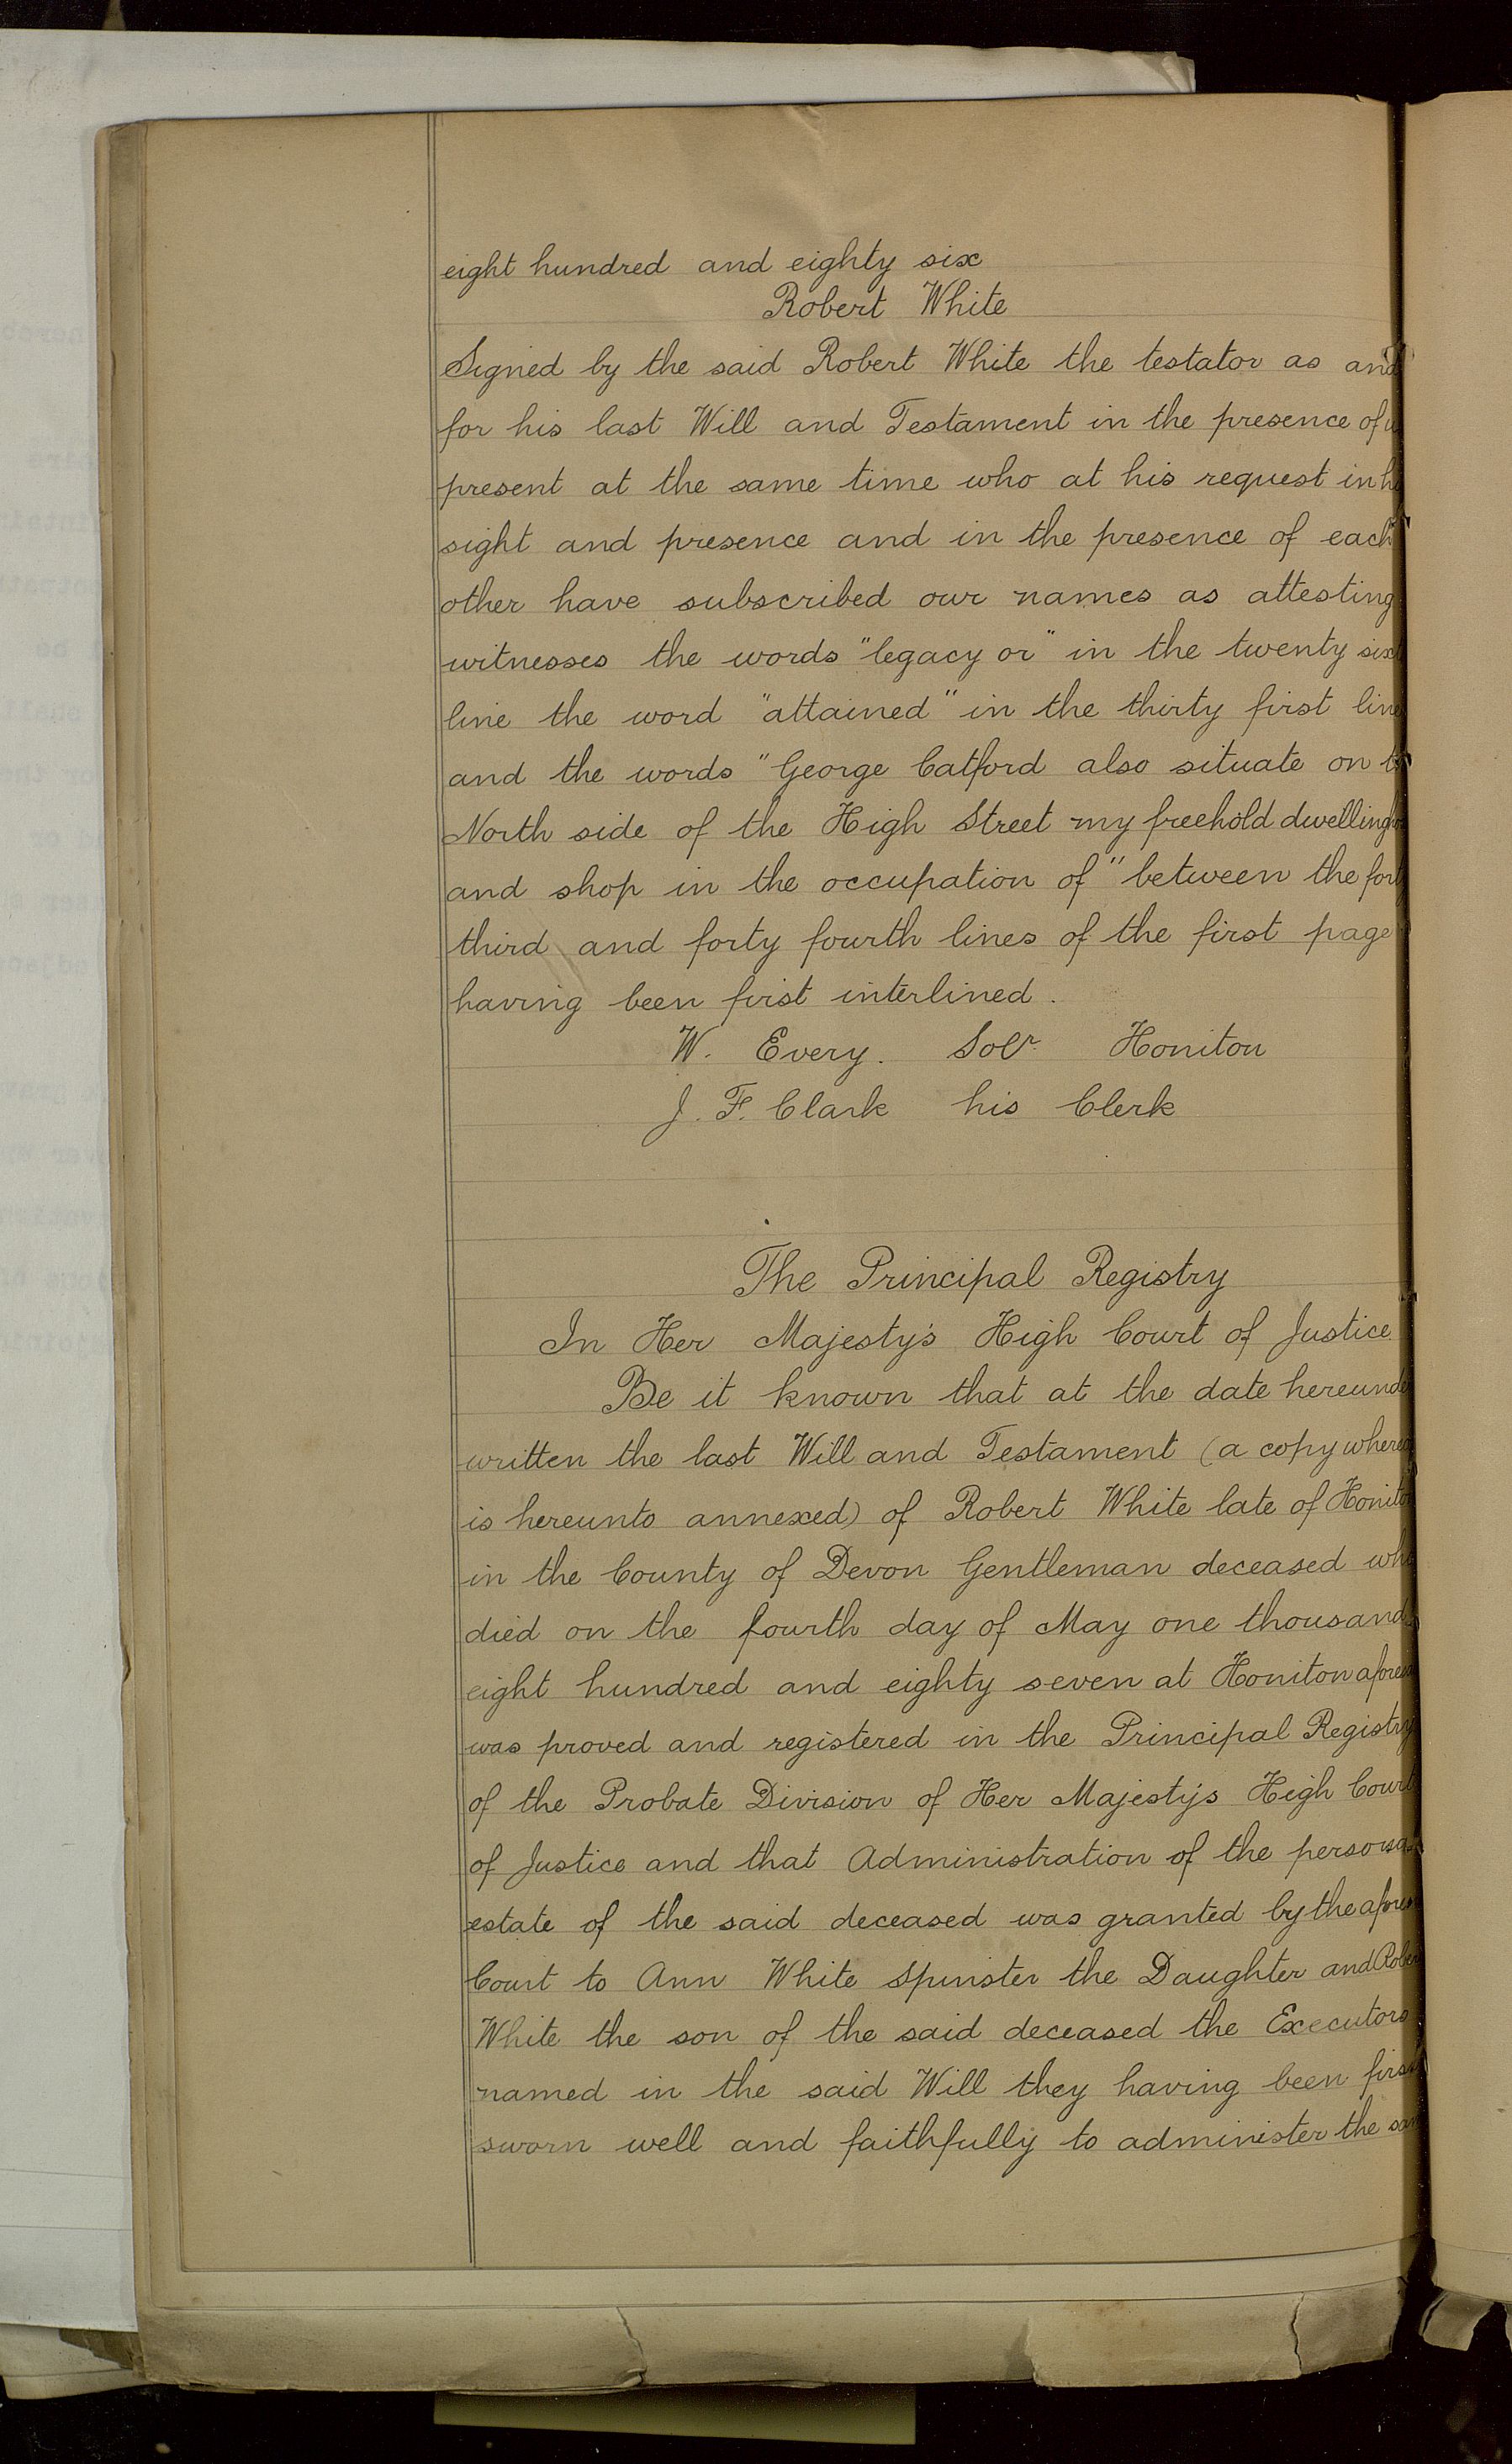 eight hundred and eighty six
Robert White
Signed by the said Robert White the testator as and
for his last Will and Testament in the presence of
present at the same time who at his request in
sight and presence and in the presence of each
other have subscribed our names as attesting
witnesses the words "legacy or" in the twenty
line the word "attained" in the thirty first line
and the words "George Catford also situate on
North side of the High Street my freehold
and shop in the occupation of" between the
third and forty fourth lines of the first page
having been first interlined.
W. Every. Solr Honiton
J. F. Clark his Clerk
The Principal Registry
In Her Majesty's High Court of Justice.
Be it known that at the date
written the last Will and Testament (a copy
is hereunto annexed) of Robert White late of Honiton
in the County of Devon Gentleman deceased
died on the fourth day of May one thousand
eight hundred and eighty seven at Honiton
was proved and registered in the Principal Registry
of the Probate Division of Her Majesty's High Court
of Justice and that Administration of the personal
estate of the said deceased was granted by the
Court to Ann White Spinster the Daughter and
White the son of the said deceased the Executors
named in the said Will they having been first
sworn well and faithfully to administer the